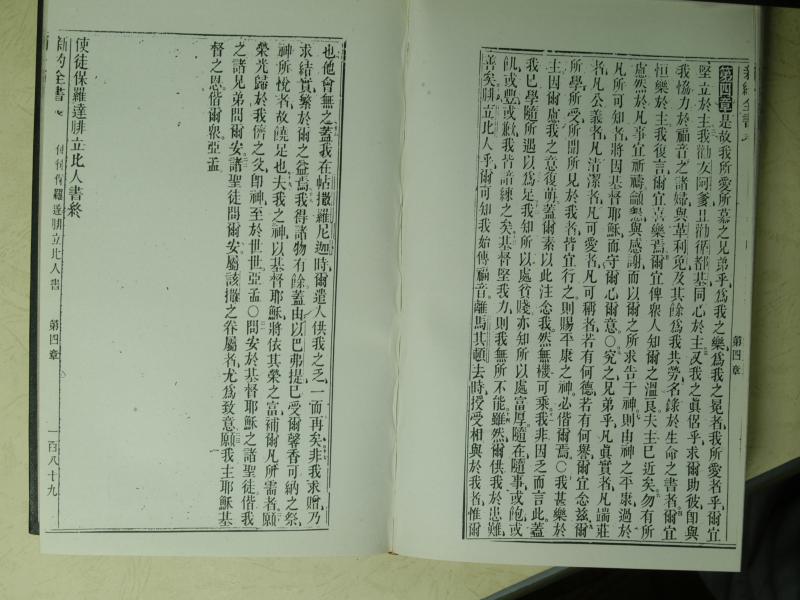 新約全書
第四章
第四章是故我所愛所慕之兄弟乎爲我之樂爲我之冕者我所愛者乎爾宜
堅立於主我勸友阿爹且勸循都基同心於主又我之眞侶乎求爾助彼卽與
我恊力於福音之諸婦與革利免及其餘爲我共勞名錄於生命之書者爾宜
恒樂於主我復言爾宜喜樂焉爾宜俾衆人知爾之溫良夫主已近矣勿有所
慮然於凡事宜祈禱籲懇與感謝而以爾之所求告于神則由神之平康過於
凡所可知者將因基督耶穌而守爾心爾意〇究之兄弟乎凡眞實者凡端莊
者凡公義者凡清潔者凡可愛者凡可稱者若有何德若有何譽爾宜念茲爾
所學所受所聞所見於我者皆宜行之則賜平康之神必偕爾焉〇我甚樂於
主因爾慮我之意復萌蓋爾素以此注念我然無機可乘我非因乏而言此蓋
我已學隨所遇以爲足我知所以處貧賤亦知所以處富厚隨在隨事或飽或
飢或豐或歉我皆諳練之矣基督堅我力則我無所不能雖然爾供我於患難
善矣腓立比人乎爾可知我始傳福音離馬其頓去時授受相與於我者惟爾
也他會無之蓋我在帖撒羅尼迦時爾遣人供我之乏一而再矣非我求贈乃
求結實繁於爾之益焉我得諸物有餘蓋由以巴弗提已受爾馨香可納之祭
神所悅者故饒足也夫我之神以基督耶穌將依其榮之富補爾凡所需者願
榮光歸於我儕之父卽神至於世世亞孟〇問安於基督耶穌之諸聖徒偕我
之諸兄弟問爾安諸聖徒問爾安屬該撒之眷屬者尤爲致意願我主耶穌基
督之恩偕爾衆亞孟
使徒保羅達腓立比人書終
新約全書
使徒保羅達腓立比人書
第四章
一百八十九